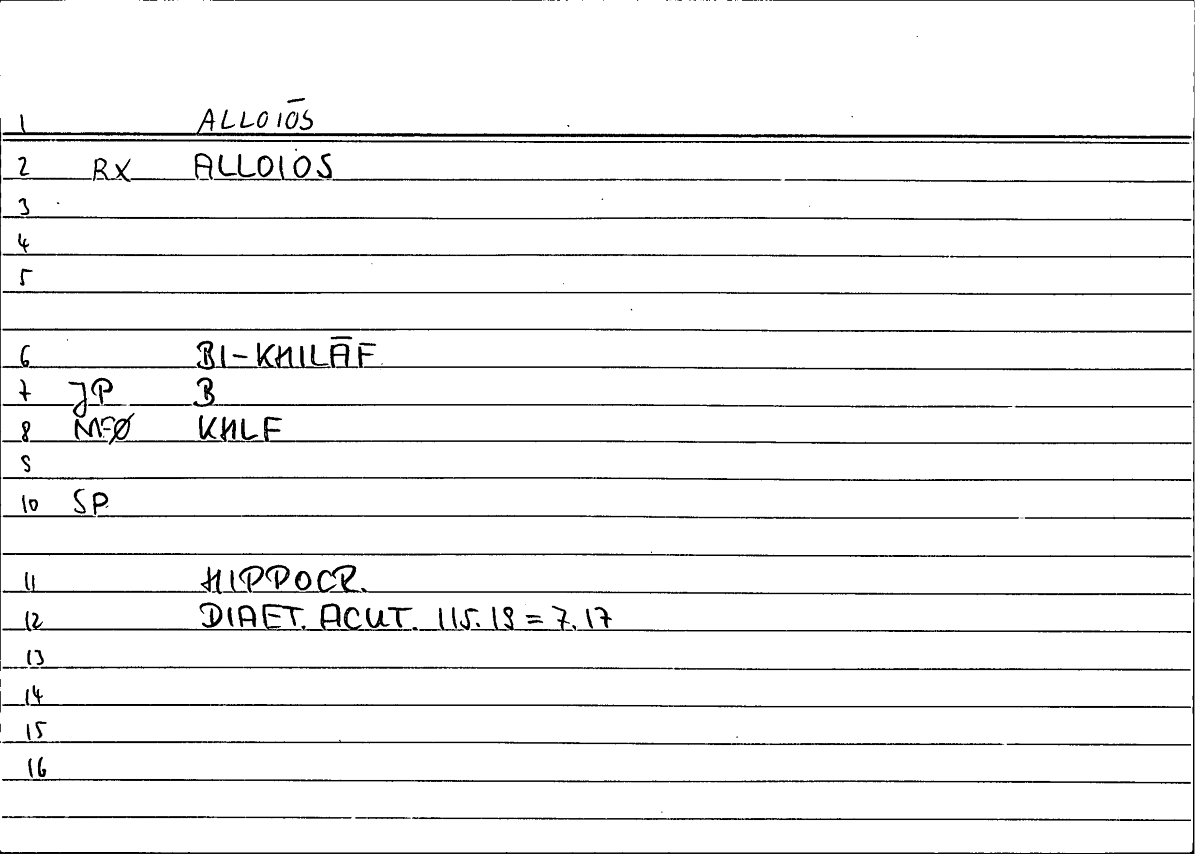 1 ALLOIŌS
2 RX ALLOIOS
3
4
5
6 BI-KHILĀF
7 JP B
8 MFØ KHLF
9
10 SP.
11 HIPPOCR.
12 DIAET. ACUT. 115.19 = 7.17
13
14
15
16